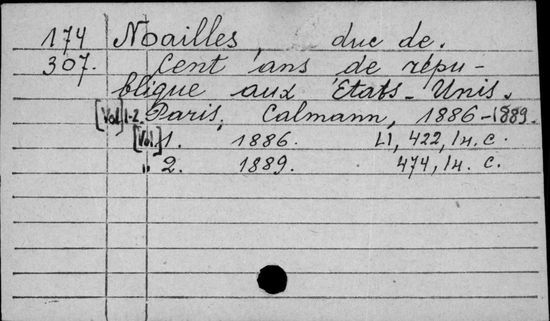 174 Noailles, duc de.
307. Cent ans de répu-
blique aux États-Unis.
[Vol.] 1-2. Paris, Calmann, 1886-1889.
[Vol.] 1. 1886. LI, 422, 1 н. с.
" 2. 1889. 474, 1 н. с.